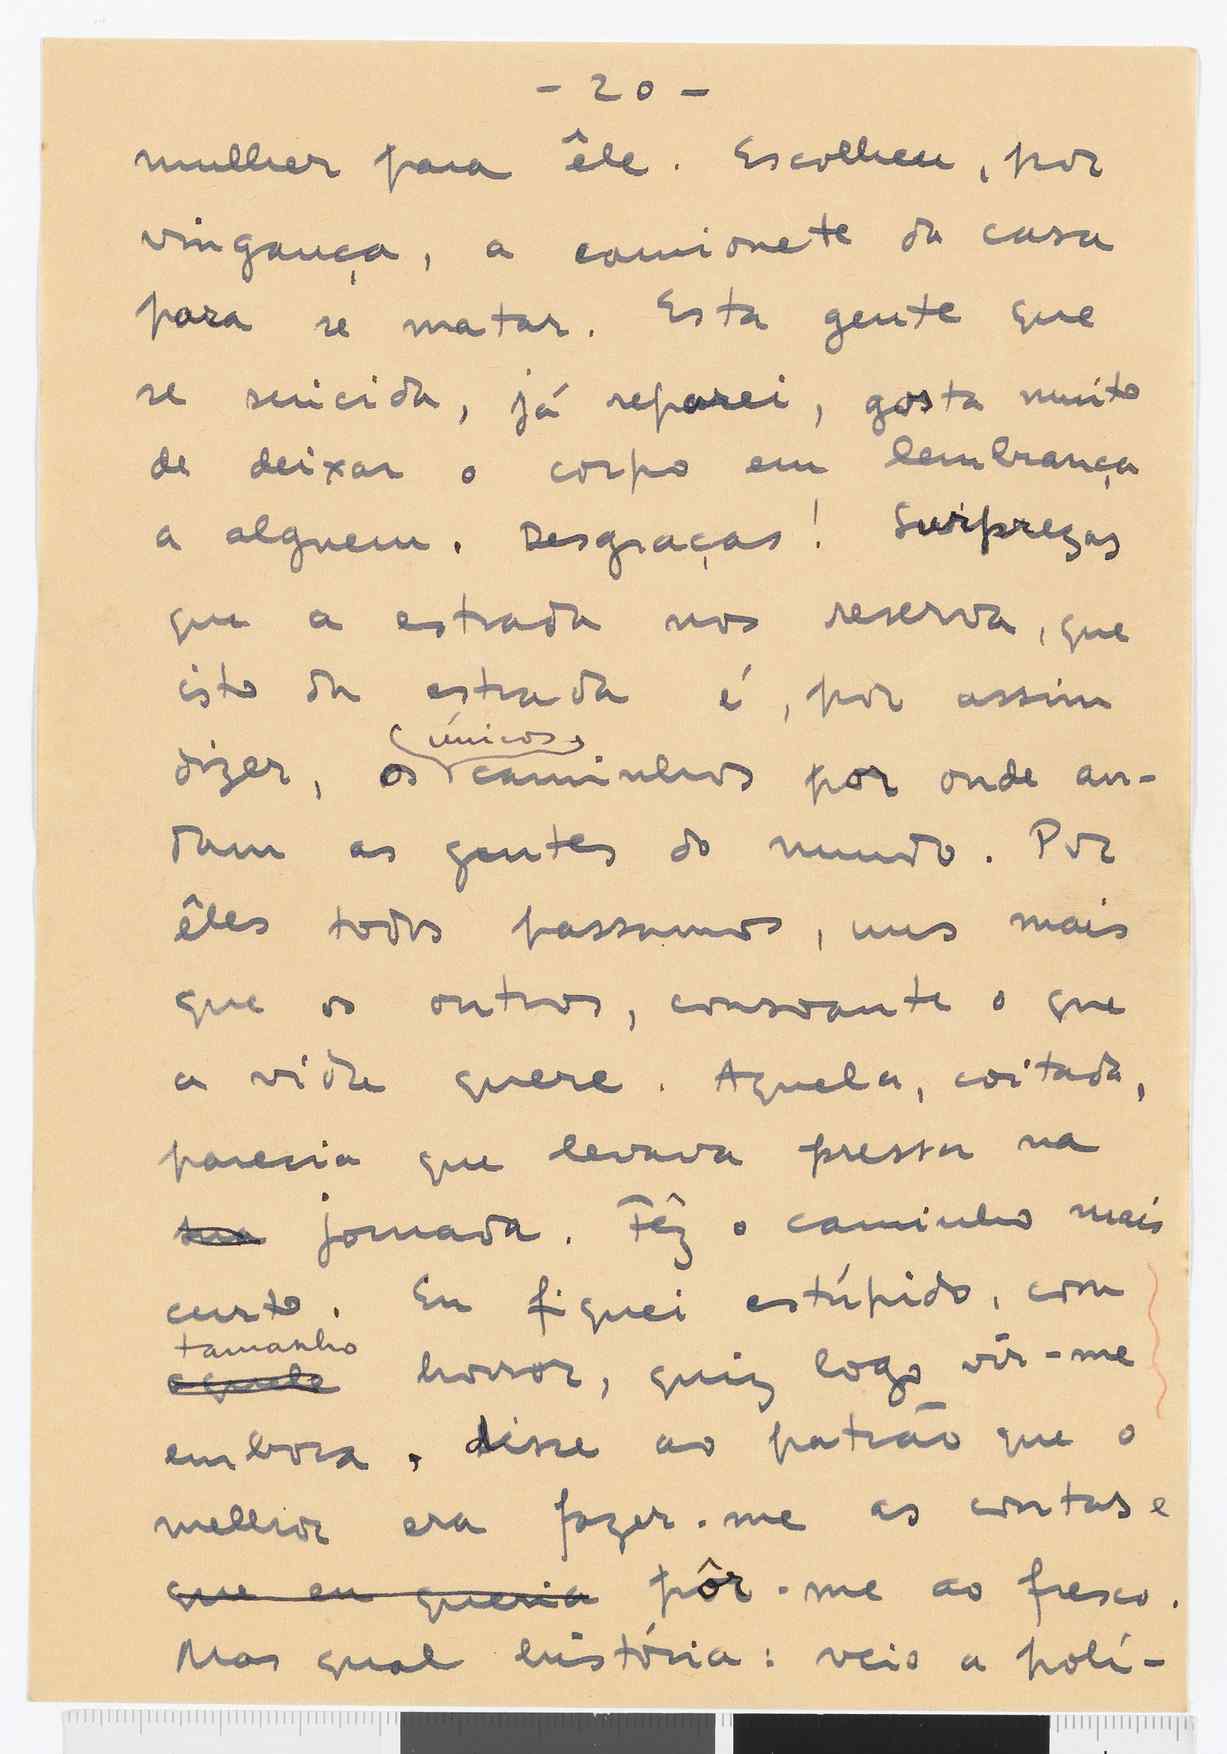 - 20 -
mulher para êle. Escolheu, por
vingança, a camionete da casa
para se matar. Esta gente que
se suicida, já reparei, gosta muito
de deixar o corpo em lembrança
a alguem. Desgraças! Surprezas
que a estrada nos reserva, que
isto da estrada é, por assim
únicos
dizer, os caminhos por onde an-
dam as gentes do mundo. Por
êles todos passamos, uns mais
que os outros, consoante o que
a vida quere. Aquela, coitada,
parecia que levava pressa na
sua jornada. Fêz o caminho mais
curto. Eu fiquei estúpido, com
tamanho
aquele horror, quiz logo vir-me
embora, disse ao patrão que o
melhor era fazer-me as contas e
que eu queria pôr-me ao fresco.
Mas qual história: veio a polí-